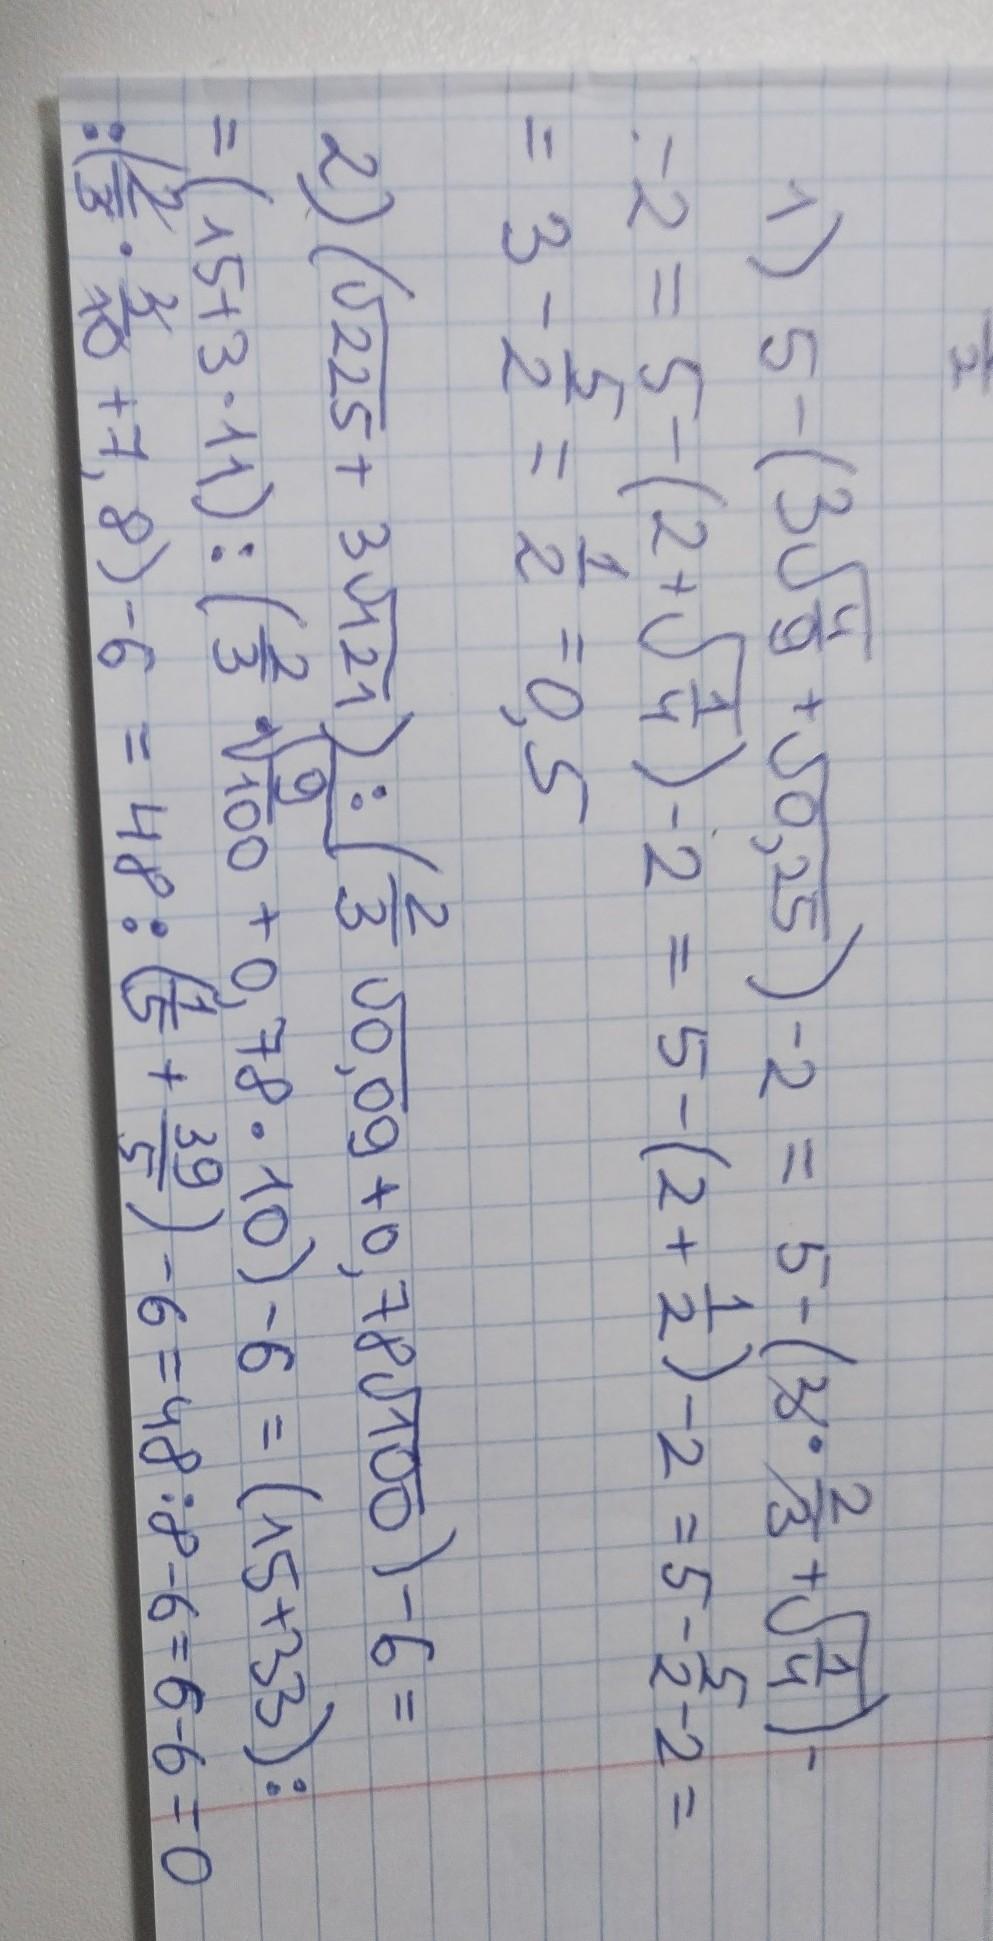 1/2
1) 5 - (3√(4/9) + √0,25) - 2 = 5 - (3 · 2/3 + √(1/4)) -
- 2 = 5 - (2 + √(1/4)) - 2 = 5 - (2 + 1/2) - 2 = 5 - 5/2 - 2 =
= 3 - 5/2 = 1/2 = 0,5
2) (√225 + 3√121) : (2/3 √0,09 + 0,78√100) - 6 =
= (15 + 3 · 11) : (2/3 · √(9/100) + 0,78 · 10) - 6 = (15 + 33) :
: (2/3 · 3/10 + 7,8) - 6 = 48 : (1/5 + 39/5) - 6 = 48 : 8 - 6 = 6 - 6 = 0